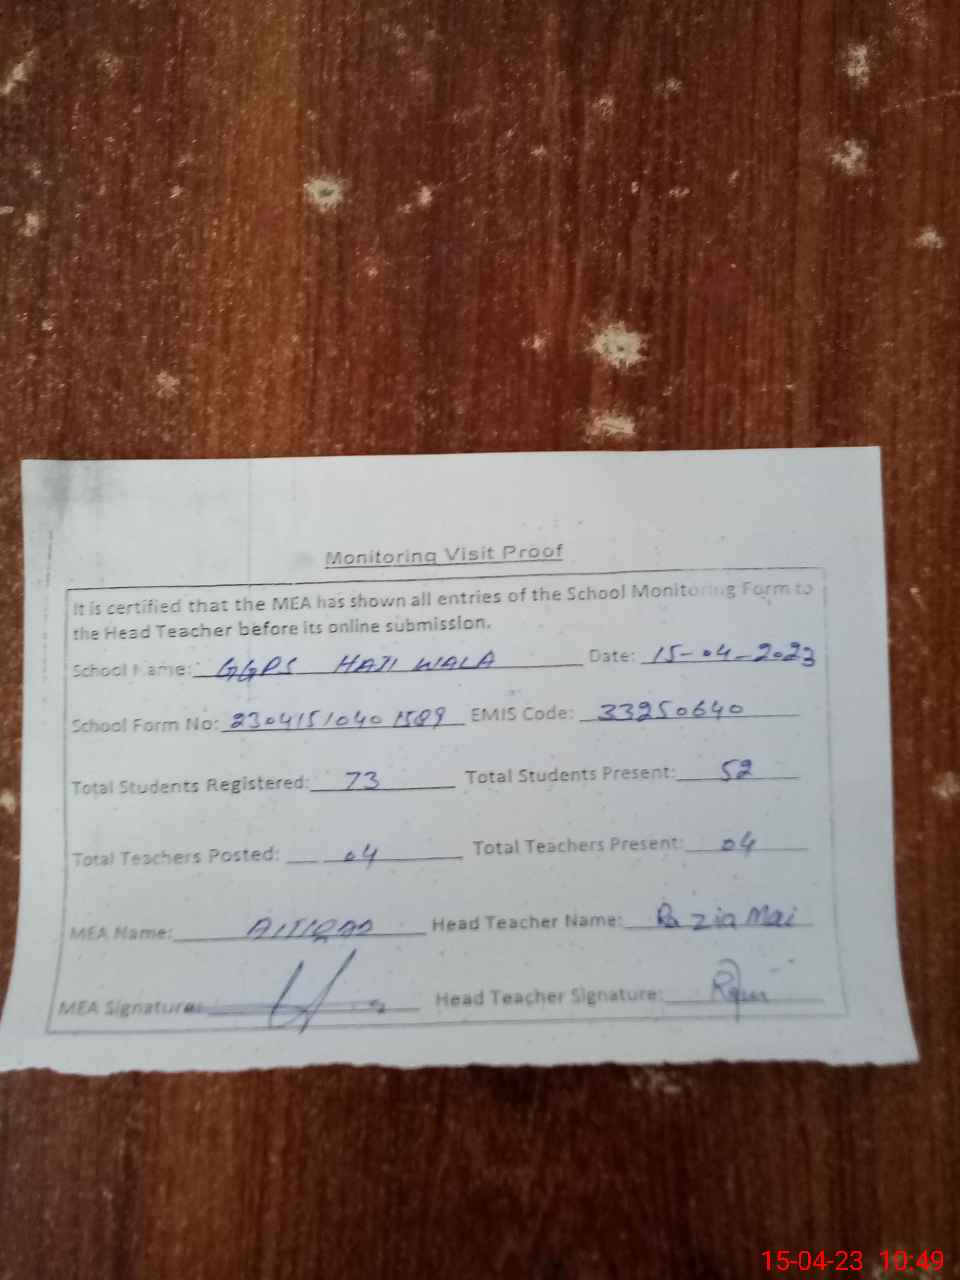 Monitoring Visit Proof
It is certified that the MEA has shown all entries of the School Monitoring Form to
the Head Teacher before its online submission.
School Name: GGPS HAJI WALA Date: 15-04-2023
School Form No: 2304151040 1589 EMIS Code: 33250640
Total Students Registered: 73 Total Students Present: 52
Total Teachers Posted: 04 Total Teachers Present: 04
MEA Name: Head Teacher Name: Razia Mai
MEA Signature: Head Teacher Signature:
15-04-23 10:49